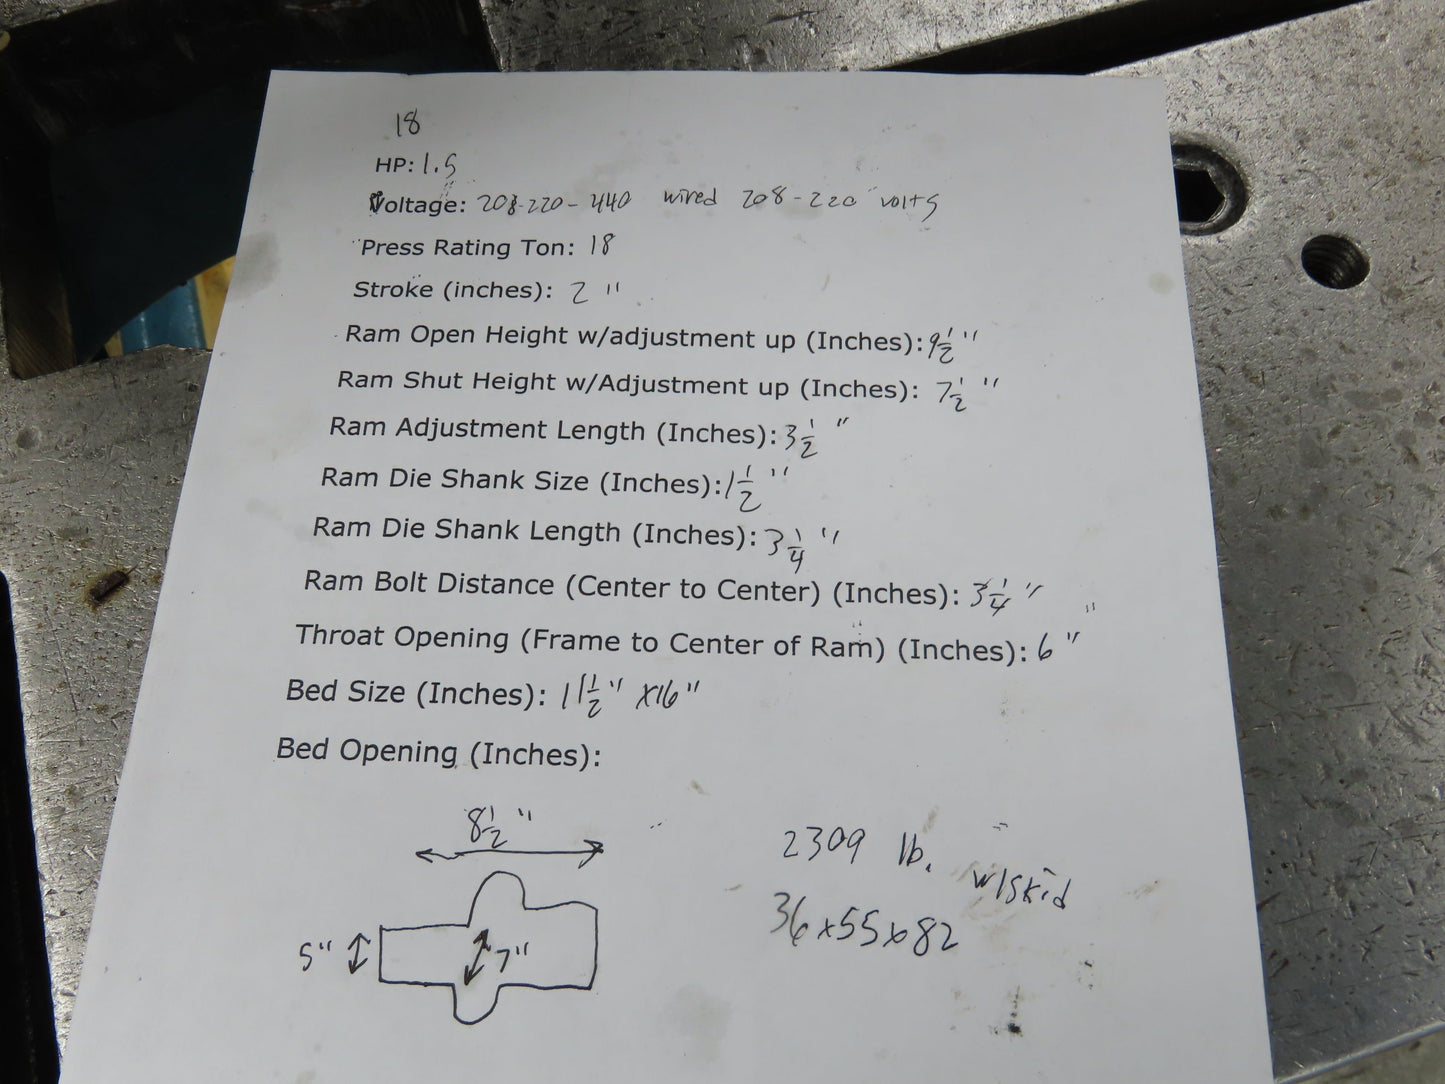 18
HP: 1.5
Voltage: 208-220-440 wired 208-220 volts
Press Rating Ton: 18
Stroke (inches): 2"
Ram Open Height w/adjustment up (Inches): 9 1/2"
Ram Shut Height w/Adjustment up (Inches): 7 1/2"
Ram Adjustment Length (Inches): 3 1/2"
Ram Die Shank Size (Inches): 1 1/2"
Ram Die Shank Length (Inches): 3 1/4"
Ram Bolt Distance (Center to Center) (Inches): 3 1/4"
Throat Opening (Frame to Center of Ram) (Inches): 6"
Bed Size (Inches): 11 1/2" x16"
Bed Opening (Inches):
8 1/2"
2309 lb. w/skid
36x55x82
5"
7"